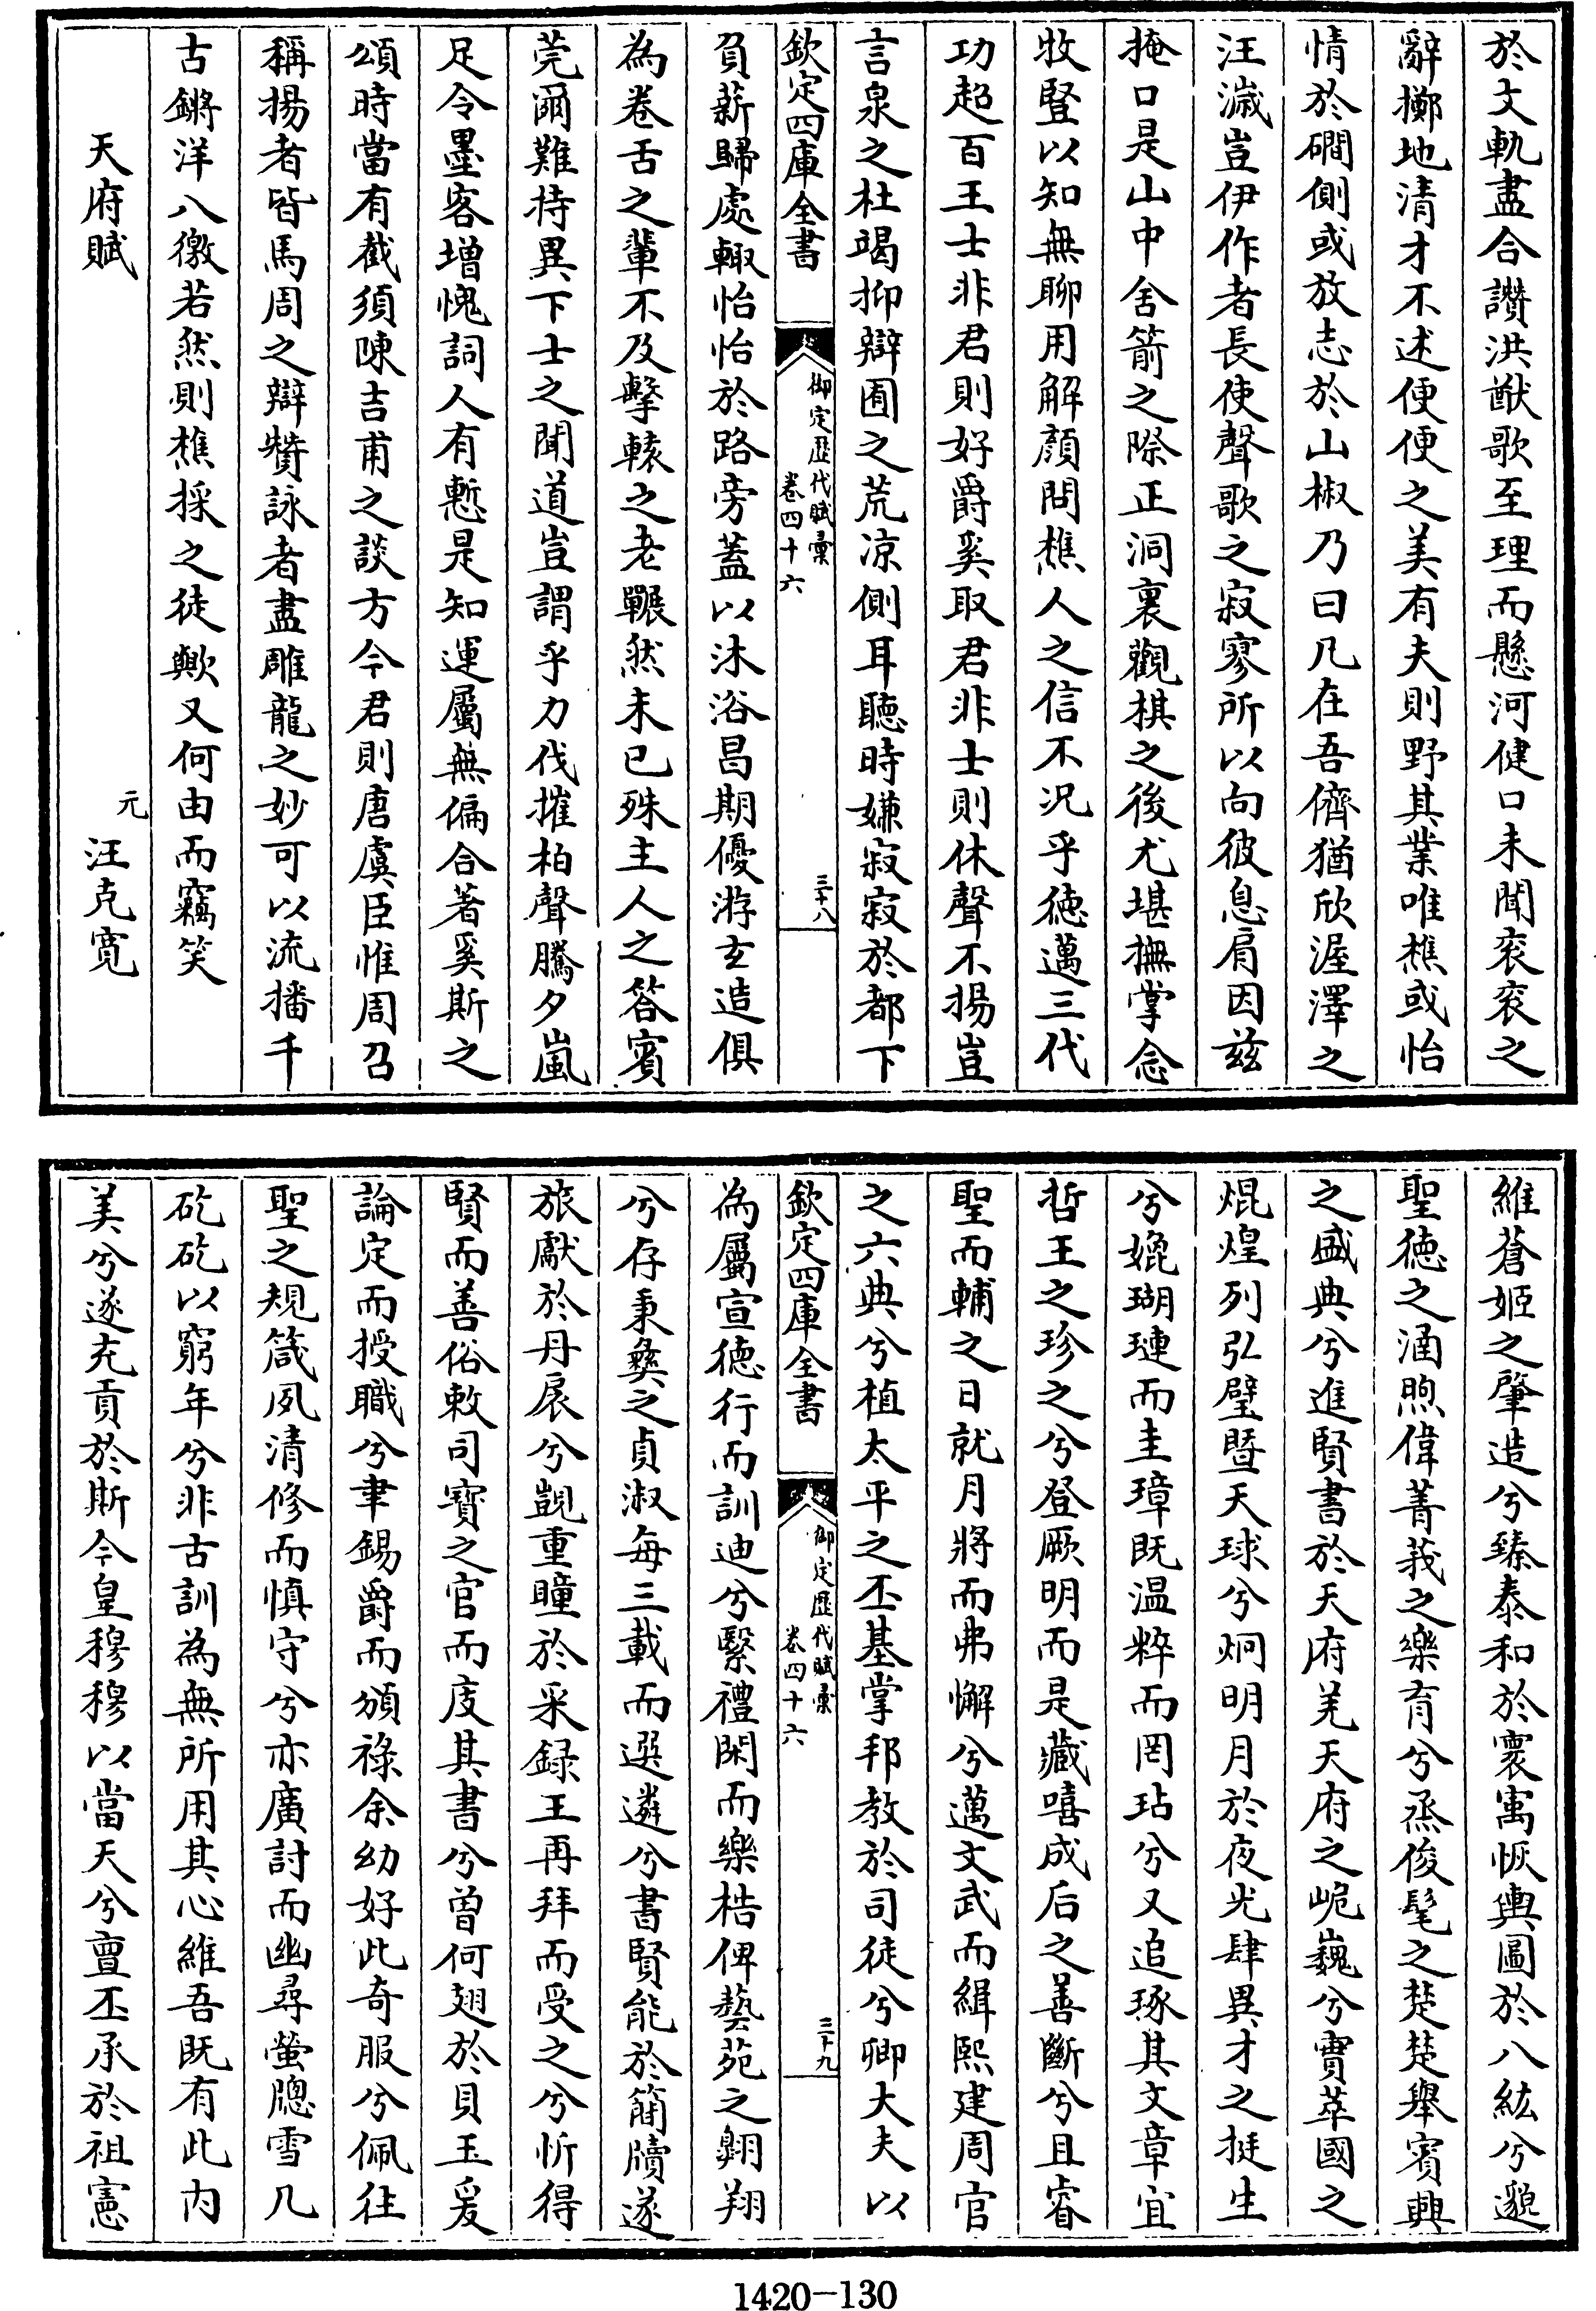 於文軌盡合讚洪猷歌至理而懸河健口未聞衮衮之
辭擲地清才不述便便之美有夫則野其業唯樵或怡
情於磵側或放志於山椒乃曰凡在吾儕猶欣渥澤之
汪濊豈伊作者長使聲歌之寂寥所以向彼息肩因茲
掩口是山中舍箭之際正洞裏觀棋之後尤堪撫掌念
牧豎以知無聊用解顔問樵人之信不況乎徳邁三代
功超百王士非君則好爵奚取君非士則休聲不揚豈
言泉之杜竭抑辯囿之荒凉側耳聽時嫌寂寂於都下
欽定四庫全書
御定歴代賦彙
卷四十六
三十八
負薪歸處輙怡怡於路旁蓋以沐浴昌期優游玄造俱
為卷舌之輩不及擊轅之老囅然未已殊主人之答賓
莞爾難持異下士之聞道豈謂乎力伐摧柏聲騰夕嵐
足令墨客增愧詞人有慙是知運屬無偏合著奚斯之
頌時當有截須陳吉甫之談方今君則唐虞臣惟周召
稱揚者皆馬周之辯贊詠者盡雕龍之妙可以流播千
古鏘洋八徼若然則樵採之徒歟又何由而竊笑
天府賦
元
汪克寛
維蒼姬之肇造兮臻泰和於寰寓恢輿圖於八紘兮邈
聖徳之涵煦偉菁莪之樂育兮烝俊髦之楚楚舉賓興
之盛典兮進賢書於天府羌天府之峗巍兮實萃國之
焜煌列弘璧暨天球兮炯明月於夜光肆異才之挺生
兮媲瑚璉而圭璋既温粹而罔玷兮又追琢其文章宜
哲王之珍之兮登厥明而是藏嘻成后之善斷兮且睿
聖而輔之日就月將而弗懈兮邁文武而緝熙建周官
之六典兮植太平之丕基掌邦教於司徒兮卿大夫以
欽定四庫全書
御定歴代賦彙
卷四十六
三十九
為屬宣徳行而訓迪兮繄禮閑而樂梏俾藝苑之翺翔
兮存秉彝之貞淑每三載而選遴兮書賢能於簡牘遂
旅獻於丹扆兮覬重瞳於采録王再拜而受之兮忻得
賢而善俗敕司寳之官而庋其書兮曽何翅於貝玉爰
論定而授職兮聿錫爵而頒祿余幼好此奇服兮佩往
聖之規箴夙清修而慎守兮亦廣討而幽尋螢牕雪几
矻矻以窮年兮非古訓為無所用其心維吾既有此内
美兮遂充貢於斯今皇穆穆以當天兮亶丕承於祖憲
1420-130